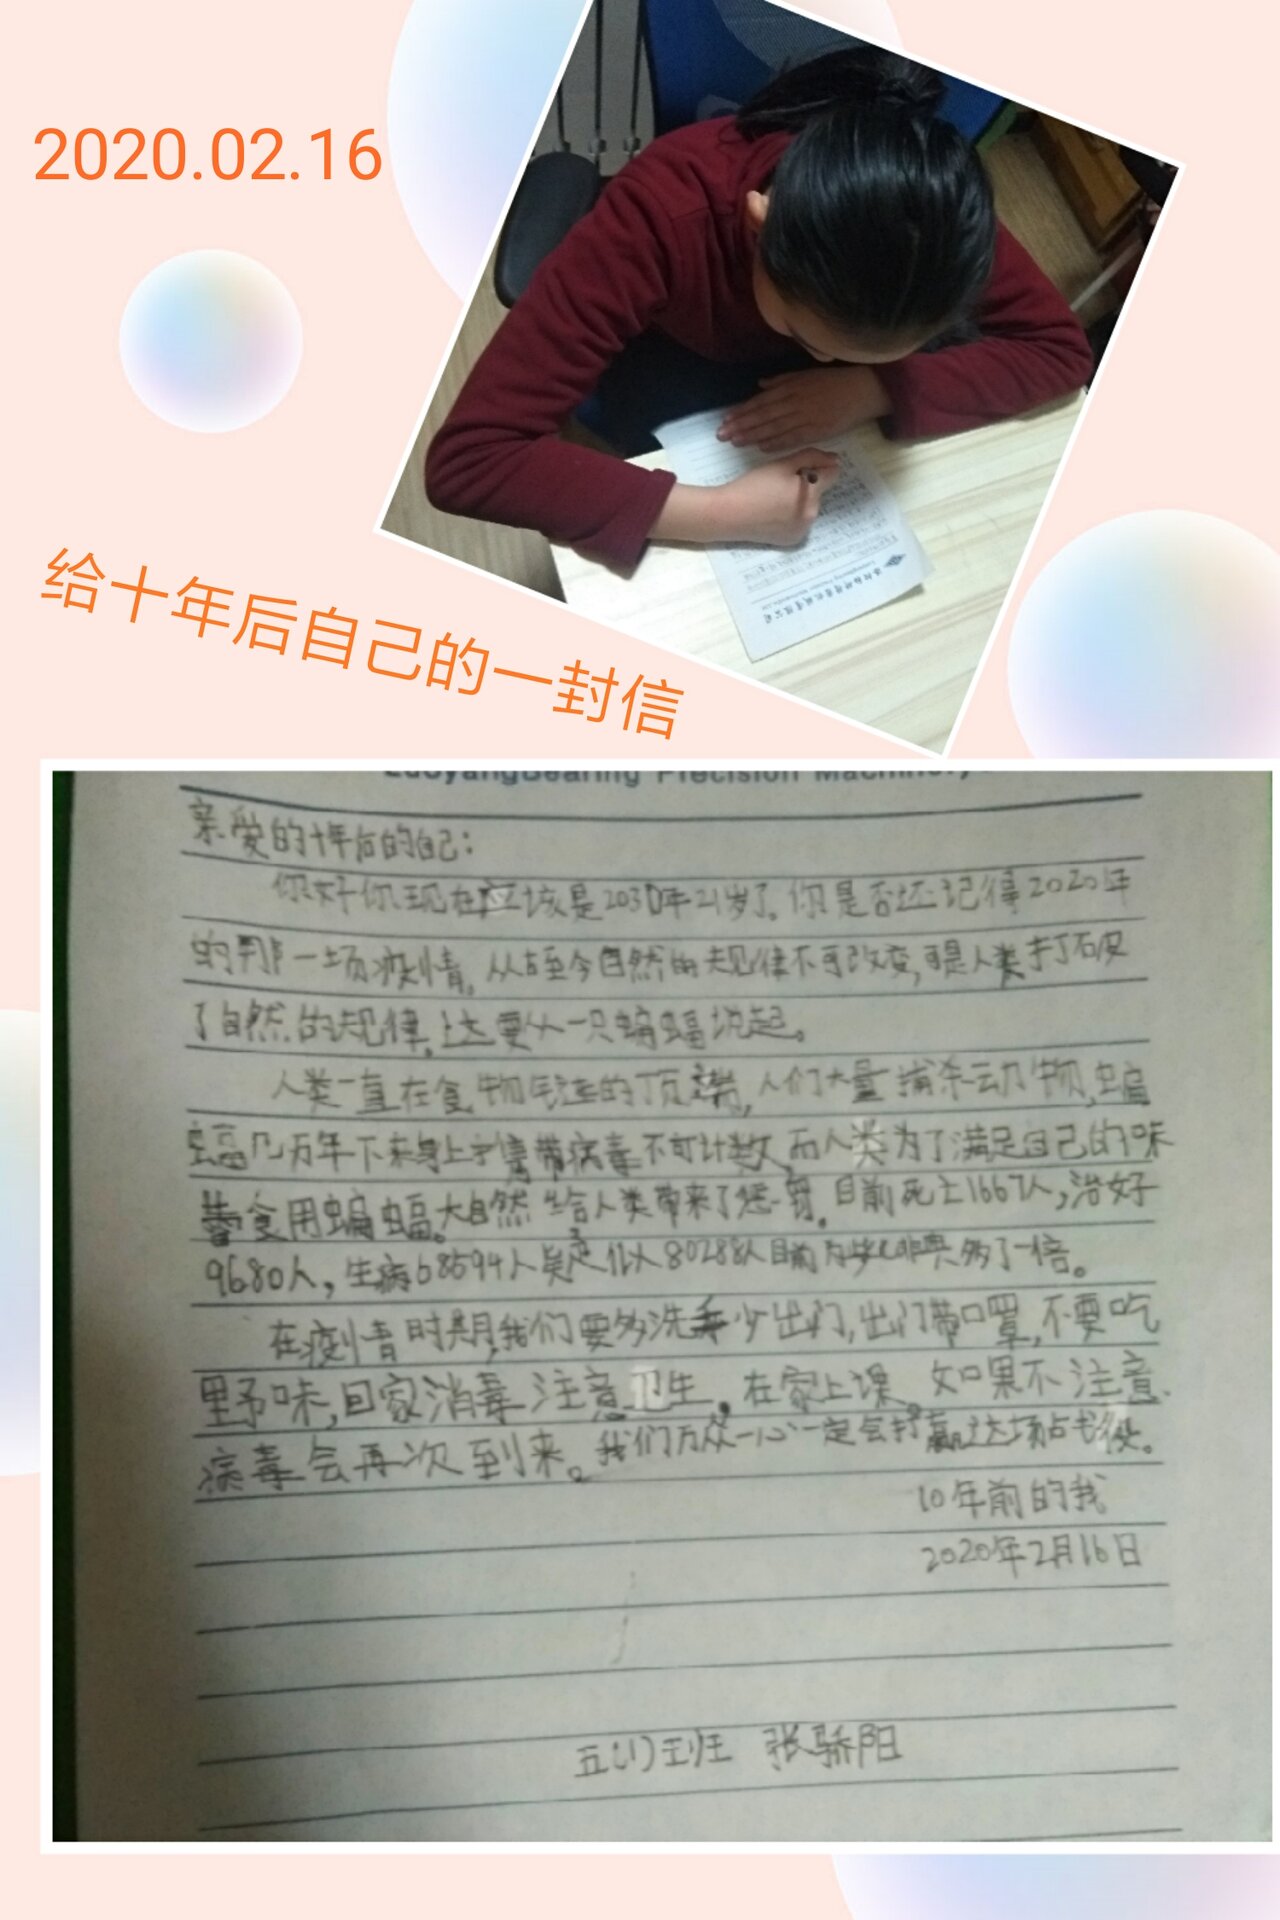 2020.02.16
给十年后自己的一封信
LuoyangBearing Precision Machinery
亲爱的十年后的自己：
你好你现在应该是2030年21岁了。你是否还记得2020年
的那一场疫情。从古至今自然的规律不可改变，可是人类打破
了自然的规律，这要从一只蝙蝠说起。
人类一直在食物链的顶端，人们大量捕杀动物，蝙
蝠几万年下来身上携带病毒不可计数，而人类为了满足自己的味
蕾食用蝙蝠。大自然给人类带来了惩罚。目前死亡1667人，治好
9680人，生病68594人疑是似人80288人目前为止比非典多了一倍。
在疫情时期，我们要多洗手少出门，出门带口罩，不要吃
野味，回家消毒注意卫生。在家上课。如果不注意
病毒会再次到来。我们万众一心一定会打赢这场占战役。
10年前的我
2020年2月16日
五(1)班 张骄阳